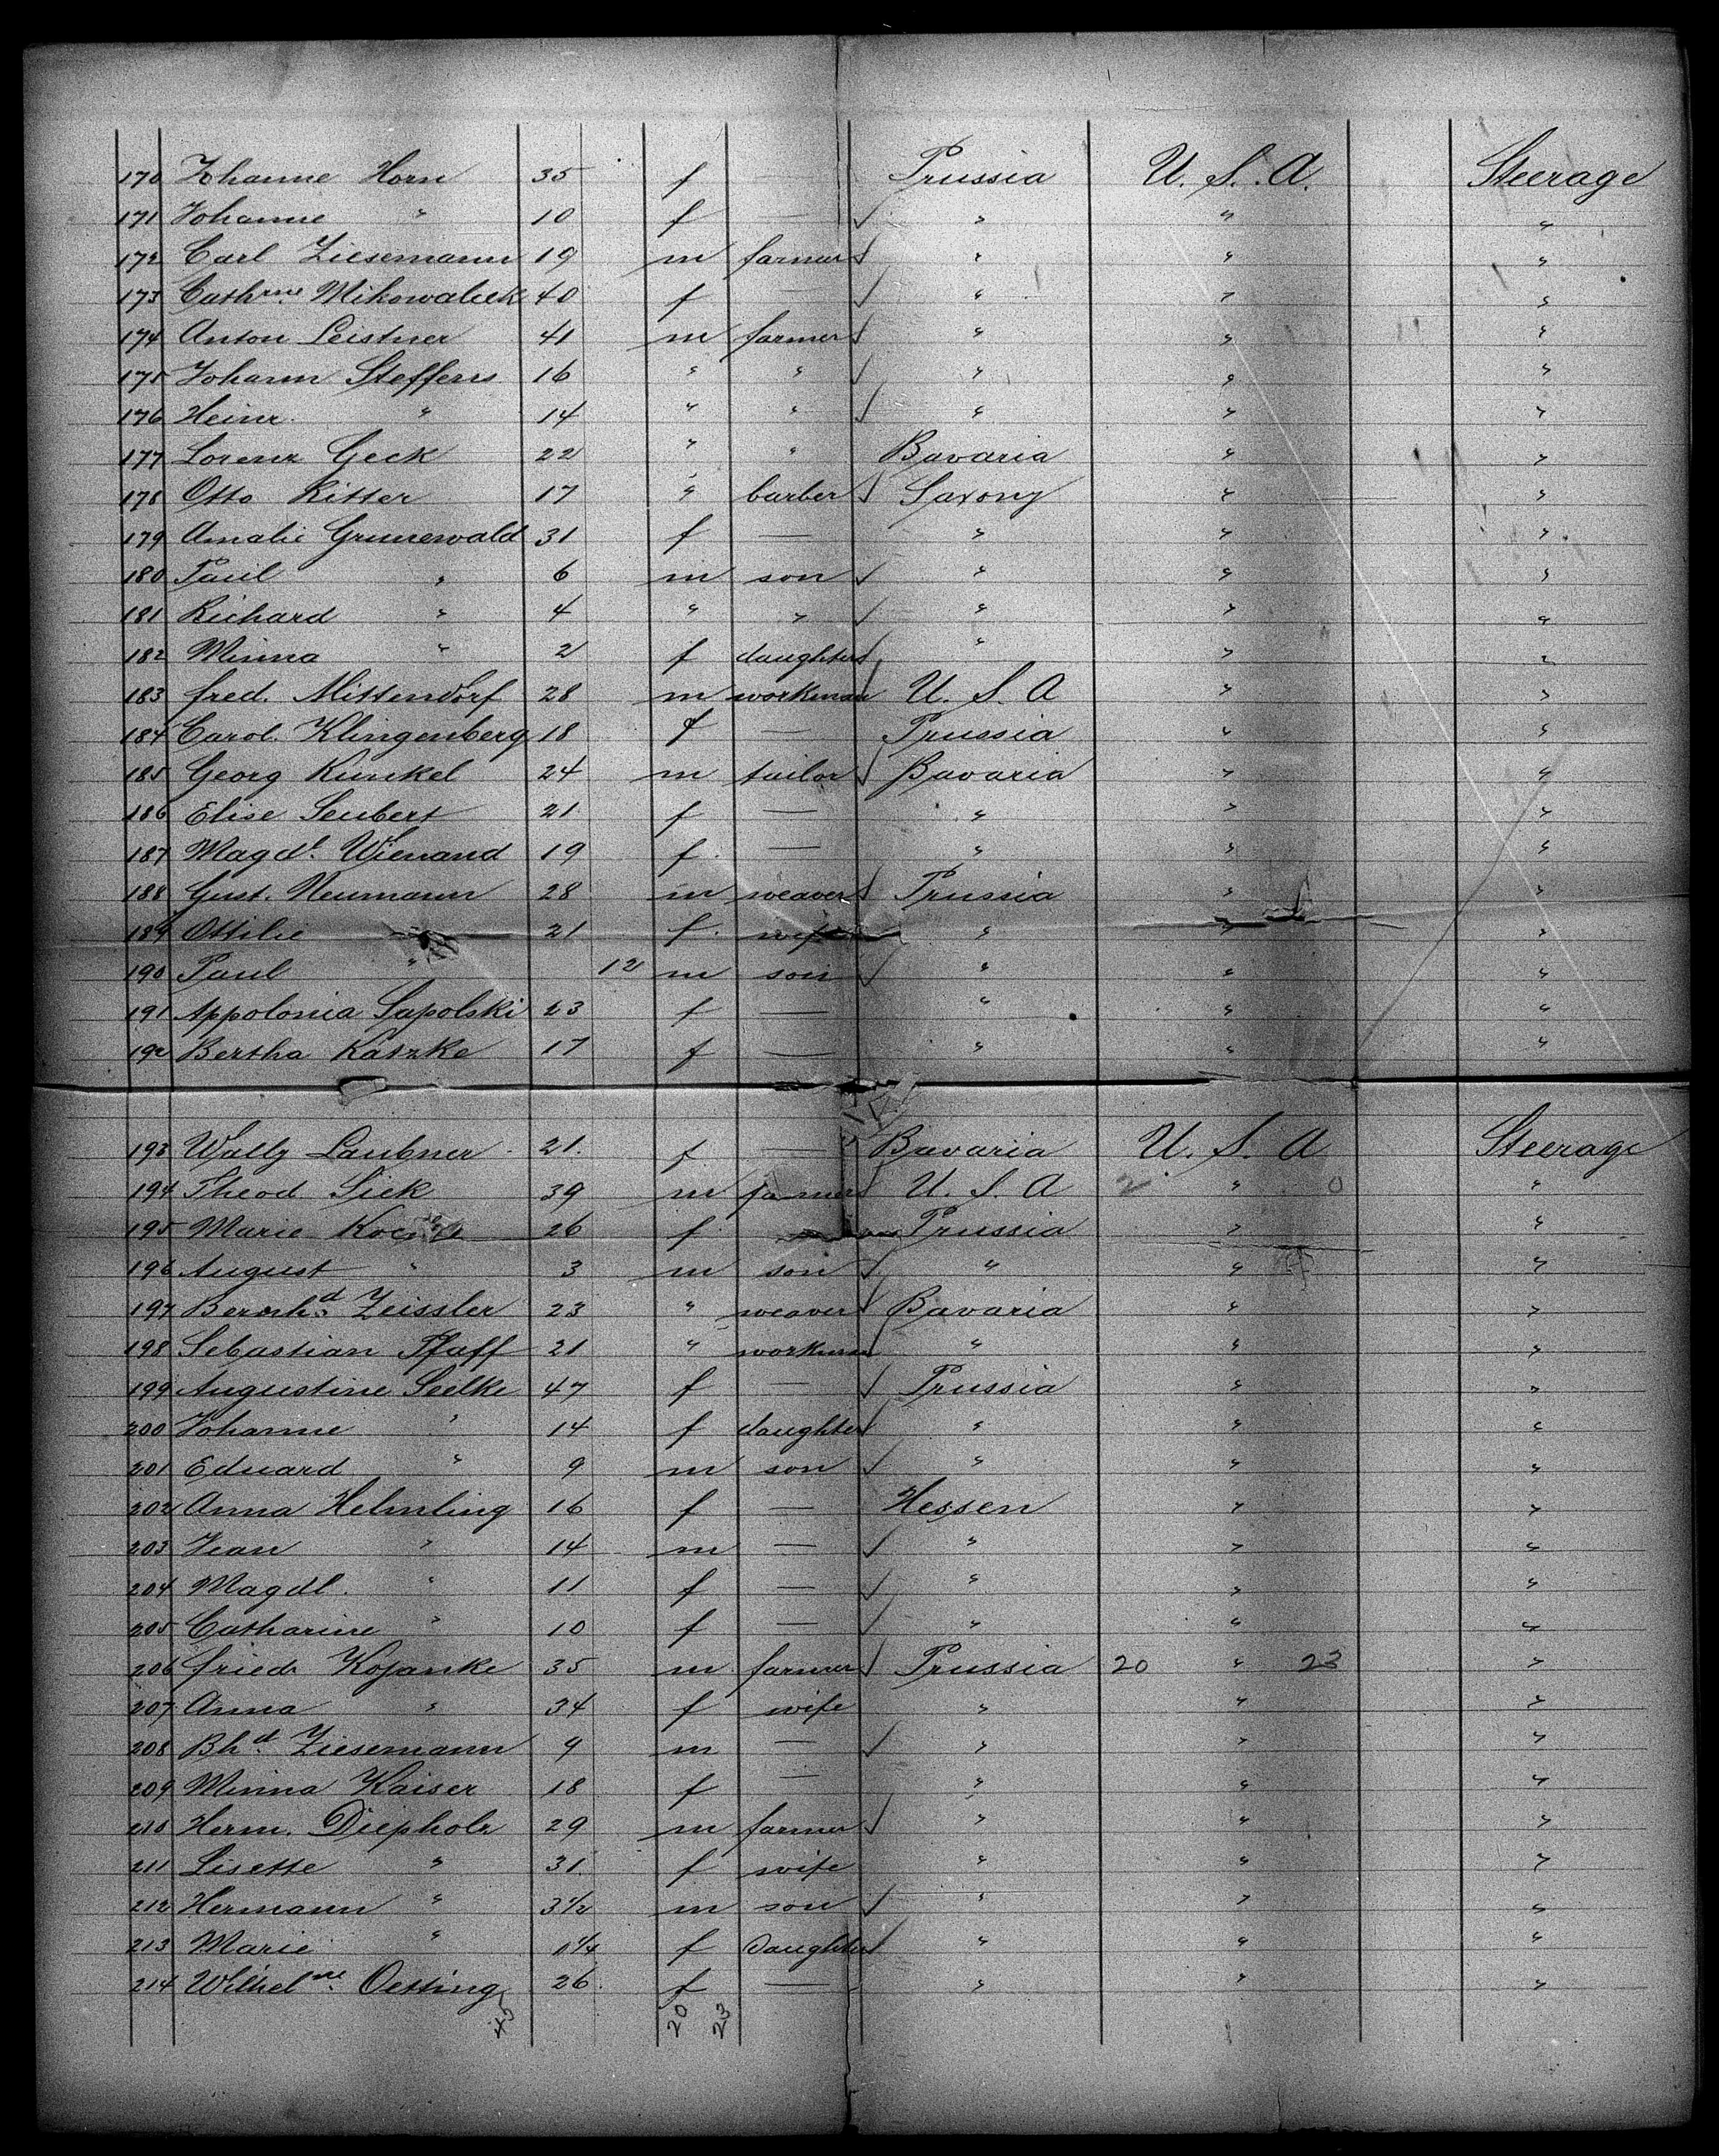 170 Johanne Horn 35 f — Prussia U. S. A. Steerage
171 Johanne " 10 f — " " "
172 Carl Ziesemann 19 m farmer " " "
173 Cathrne Mikowaleck 40 f — " " "
174 Anton Leistner 41 m farmer " " "
175 Johann Steffens 16 " " " " "
176 Heinr. " 14 " " " " "
177 Lorenz Geck 22 " " Bavaria " "
178 Otto Ritter 17 " barber Saxony " "
179 Amalie Grunewald 31 f — " " "
180 Paul " 6 m son " " "
181 Richard " 4 " " " " "
182 Minna " 2 f daughter " " "
183 fred. Mittendorf 28 m workman U. S. A " "
184 Carol. Klingenberg 18 f — Prussia " "
185 Georg Kunkel 24 m tailor Bavaria " "
186 Elise Seubert 21 f — " " "
187 Magdl. Wienand 19 f. — " " "
188 Gust. Neumann 28 m weaver Prussia " "
189 Ottilie " 21 f. wife " " "
190 Paul " 12 m son " " "
191 Appolonia Sapolski 23 f — " " "
192 Bertha Katzke 17 f — " " "
193 Wally Laubner 21. f — Bavaria U. S. A Steerage
194 Theod Sick 39 m farmer U. S. A 2 " 0 "
195 Marie 26 f. Prussia " "
196 August " 3 m son " " "
197 Bernhd. Zeissler 23 " weaver Bavaria " "
198 Sebastian Pfaff 21 " workman " " "
199 Augustine Seelke 47 f — Prussia " "
200 Johanne " 14 f daughter " " "
201 Eduard " 9 m son " " "
202 Anna Helmling 16 f — Hessen " "
203 Jean " 14 m — " " "
204 Magdl. " 11 f — " " "
205 Catharine " 10 f — " " "
206 friedr Kojanke 35 m farmer Prussia 20 " 23 "
207 Anna " 34 f wife " " "
208 Bhd. Ziesemann 9 m — " " "
209 Minna Kaiser 18 f — " " "
210 Herm. Diepholz 29 m farmer " " "
211 Lisette " 31. f wife " " "
212 Hermann " 3½ m son " " "
213 Marie " ¼ f Daughter " " "
214 Wilhelne. Oetting 26. f — " " "
45 20 23